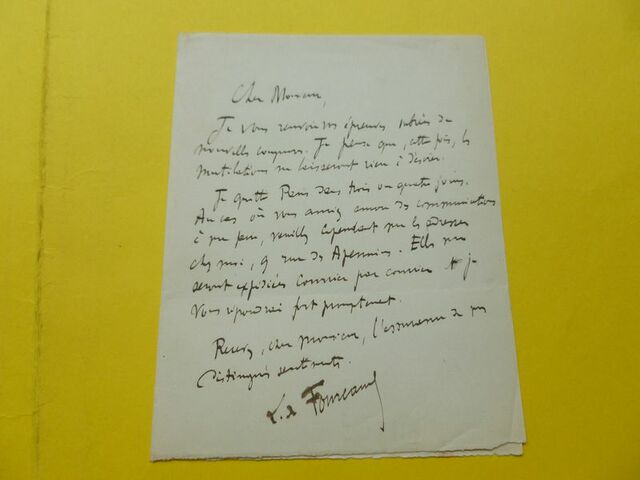 Cher Monsieur,
Je vous renvoie vos épreuves zébrées de
nouvelles coupures. Je pense que, cette fois, les
mutilations ne laisseront rien à désirer.
Je quitte Paris dans trois ou quatre jours.
Au cas où vous auriez encore des communications
à me faire, veuillez cependant me les adresser
chez moi, 9 rue des Apennins. Elles me
seront expédiées courrier par courrier et je
vous répondrai fort promptement.
Recevez, cher monsieur, l'assurance de mes
distingués sentiments.
L. de Fourcaud